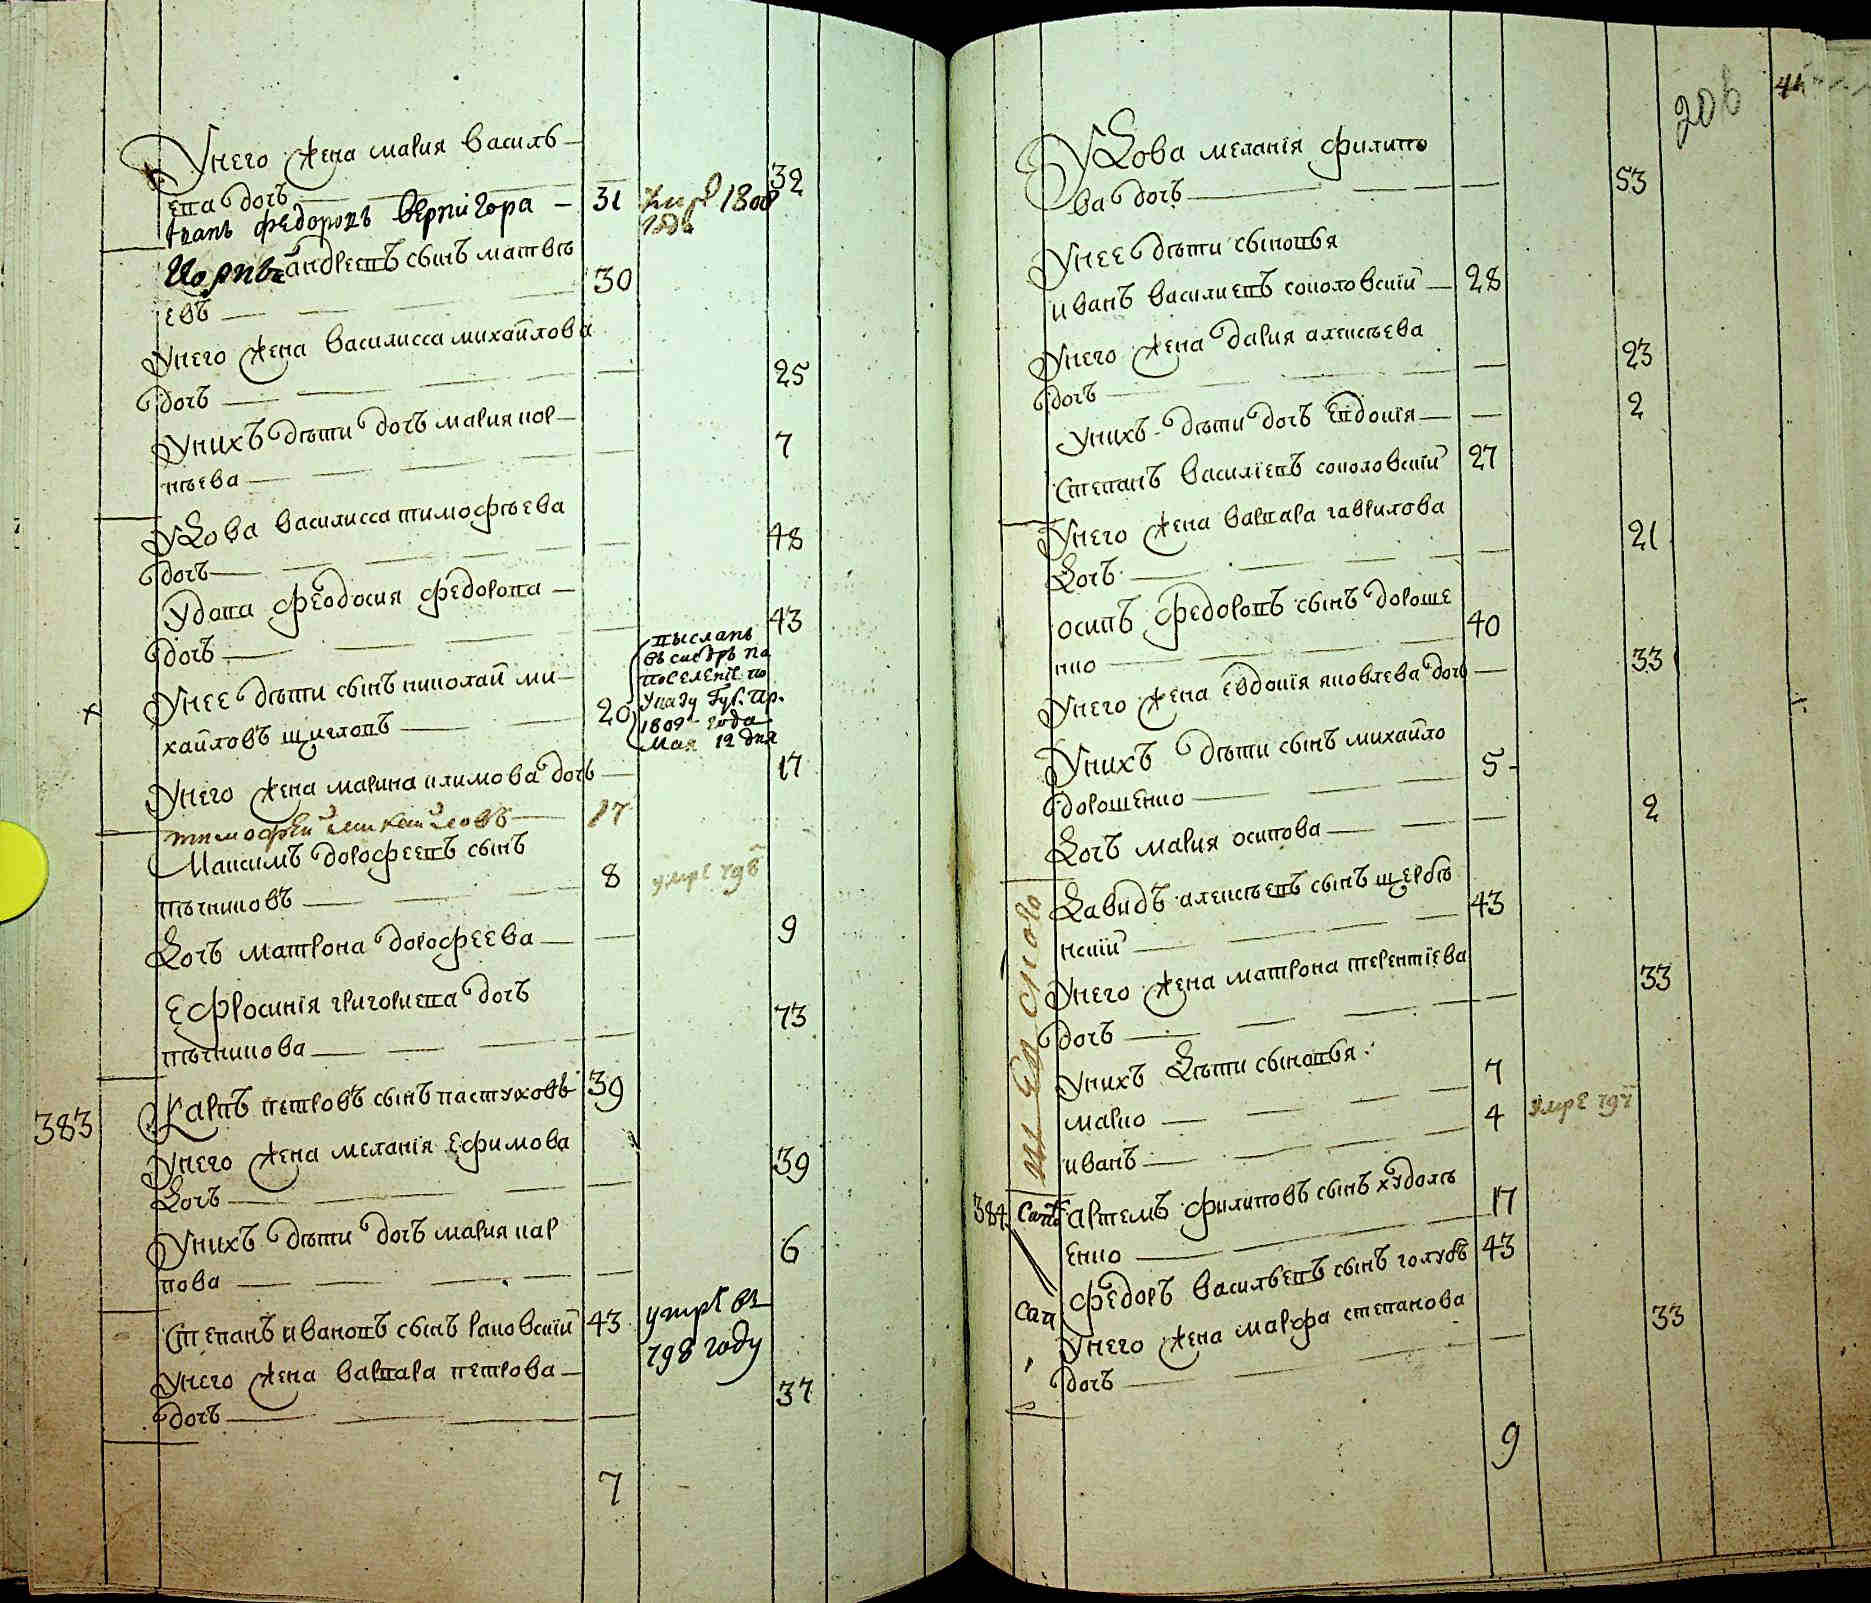 Унего жена мария василь
ева дочь 32
Иванъ федоровъ вернигора 31 умре 1808
годъ
Корнѣй андреевъ сынъ матвѣ
евъ 30
Унего жена василисса михайлова
дочь 25
Унихъ дѣти дочь мария кор
нѣева 7
Удова василисса тимофѣева
дочь 48
Удова феодосия федорова
дочь 43
Унее дѣти сынъ николай ми
хайловъ щегловъ 20
высланъ
въ сибѣръ на
поселение по
указу Губ. пр.
1809 года
Мая 12 дня
Унего жена марина климова дочь 17
тимофей михайловъ 17
Максимъ дорофеевъ сынъ
пѣчниковъ 8 умре 798
Дочь матрона дорофеева 9
Ефросинія григориева дочь
пѣчникова 73
383 Карпъ петровъ сынъ пастуховъ 39
Унего жена меланія ефимова
дочь 39
Унихъ дѣти дочь мария кар
пова 6
Степанъ ивановъ сынъ раковский 43 умре въ
798 году
Унего жена варвара петрова
дочь 37
7
206
Удова меланія филипо
ва дочь 53
Унее дѣти сыновья
иванъ василиевъ соколовский 28
Унего жена дария алексѣева
дочь 23
Унихъ дѣти дочь евдокія 2
Степанъ василіевъ соколовский 27
Унего жена варвара гаврилова
дочь 21
осипъ федоровъ сынъ дороше
нко 40
Унего жена евдокія яковлева дочь 33
Унихъ дѣти сынъ михайло
дорошенко 5
Дочь мария осипова 2
Давидъ алексѣевъ сынъ щербѣ
нский 43
Унего жена матрона терентіева
дочь 33
Унихъ Дѣти сыновья
марко 7
иванъ 4 умре 797
384 артемъ филиповъ сынъ худолѣ
енко 17
федоръ васильевъ сынъ голубъ 43
Унего жена марфа степанова
дочь 33
9